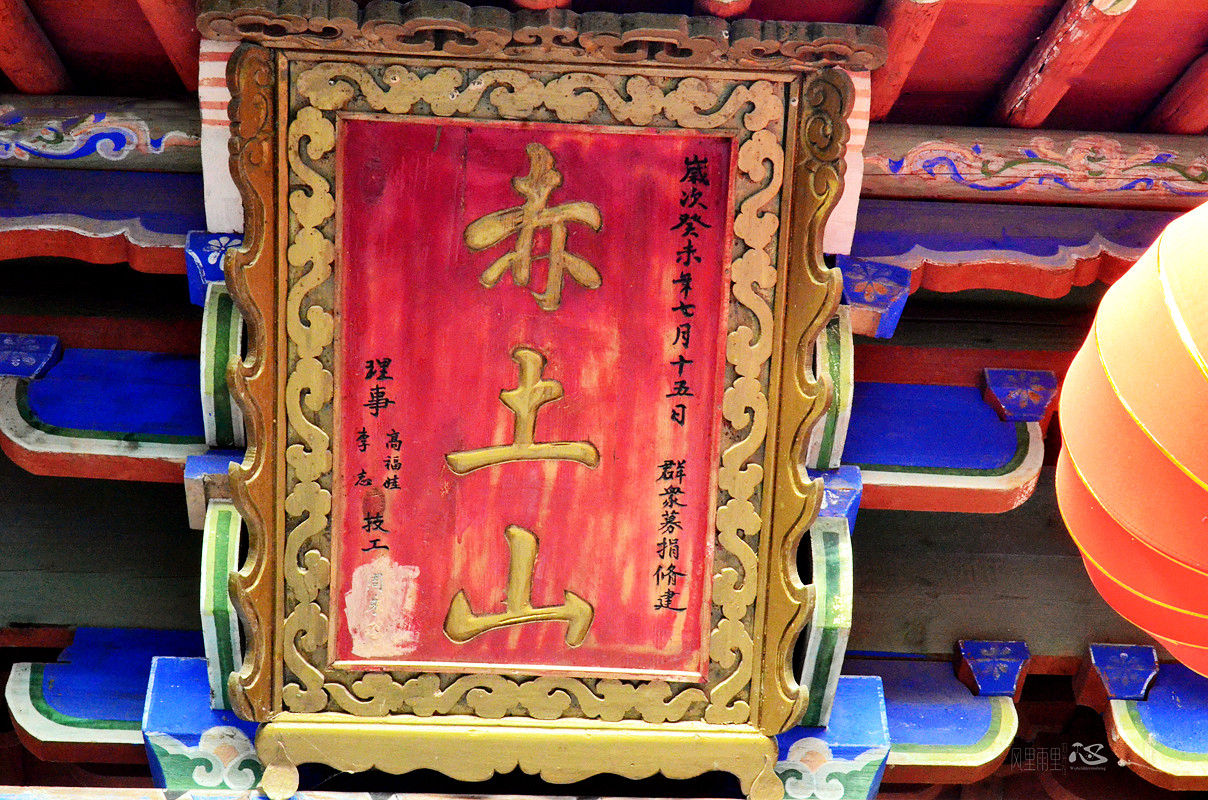 歲次癸未年七月十五日 群衆募捐脩建
赤土山
理事 高福娃 李志 技工
风里雨里